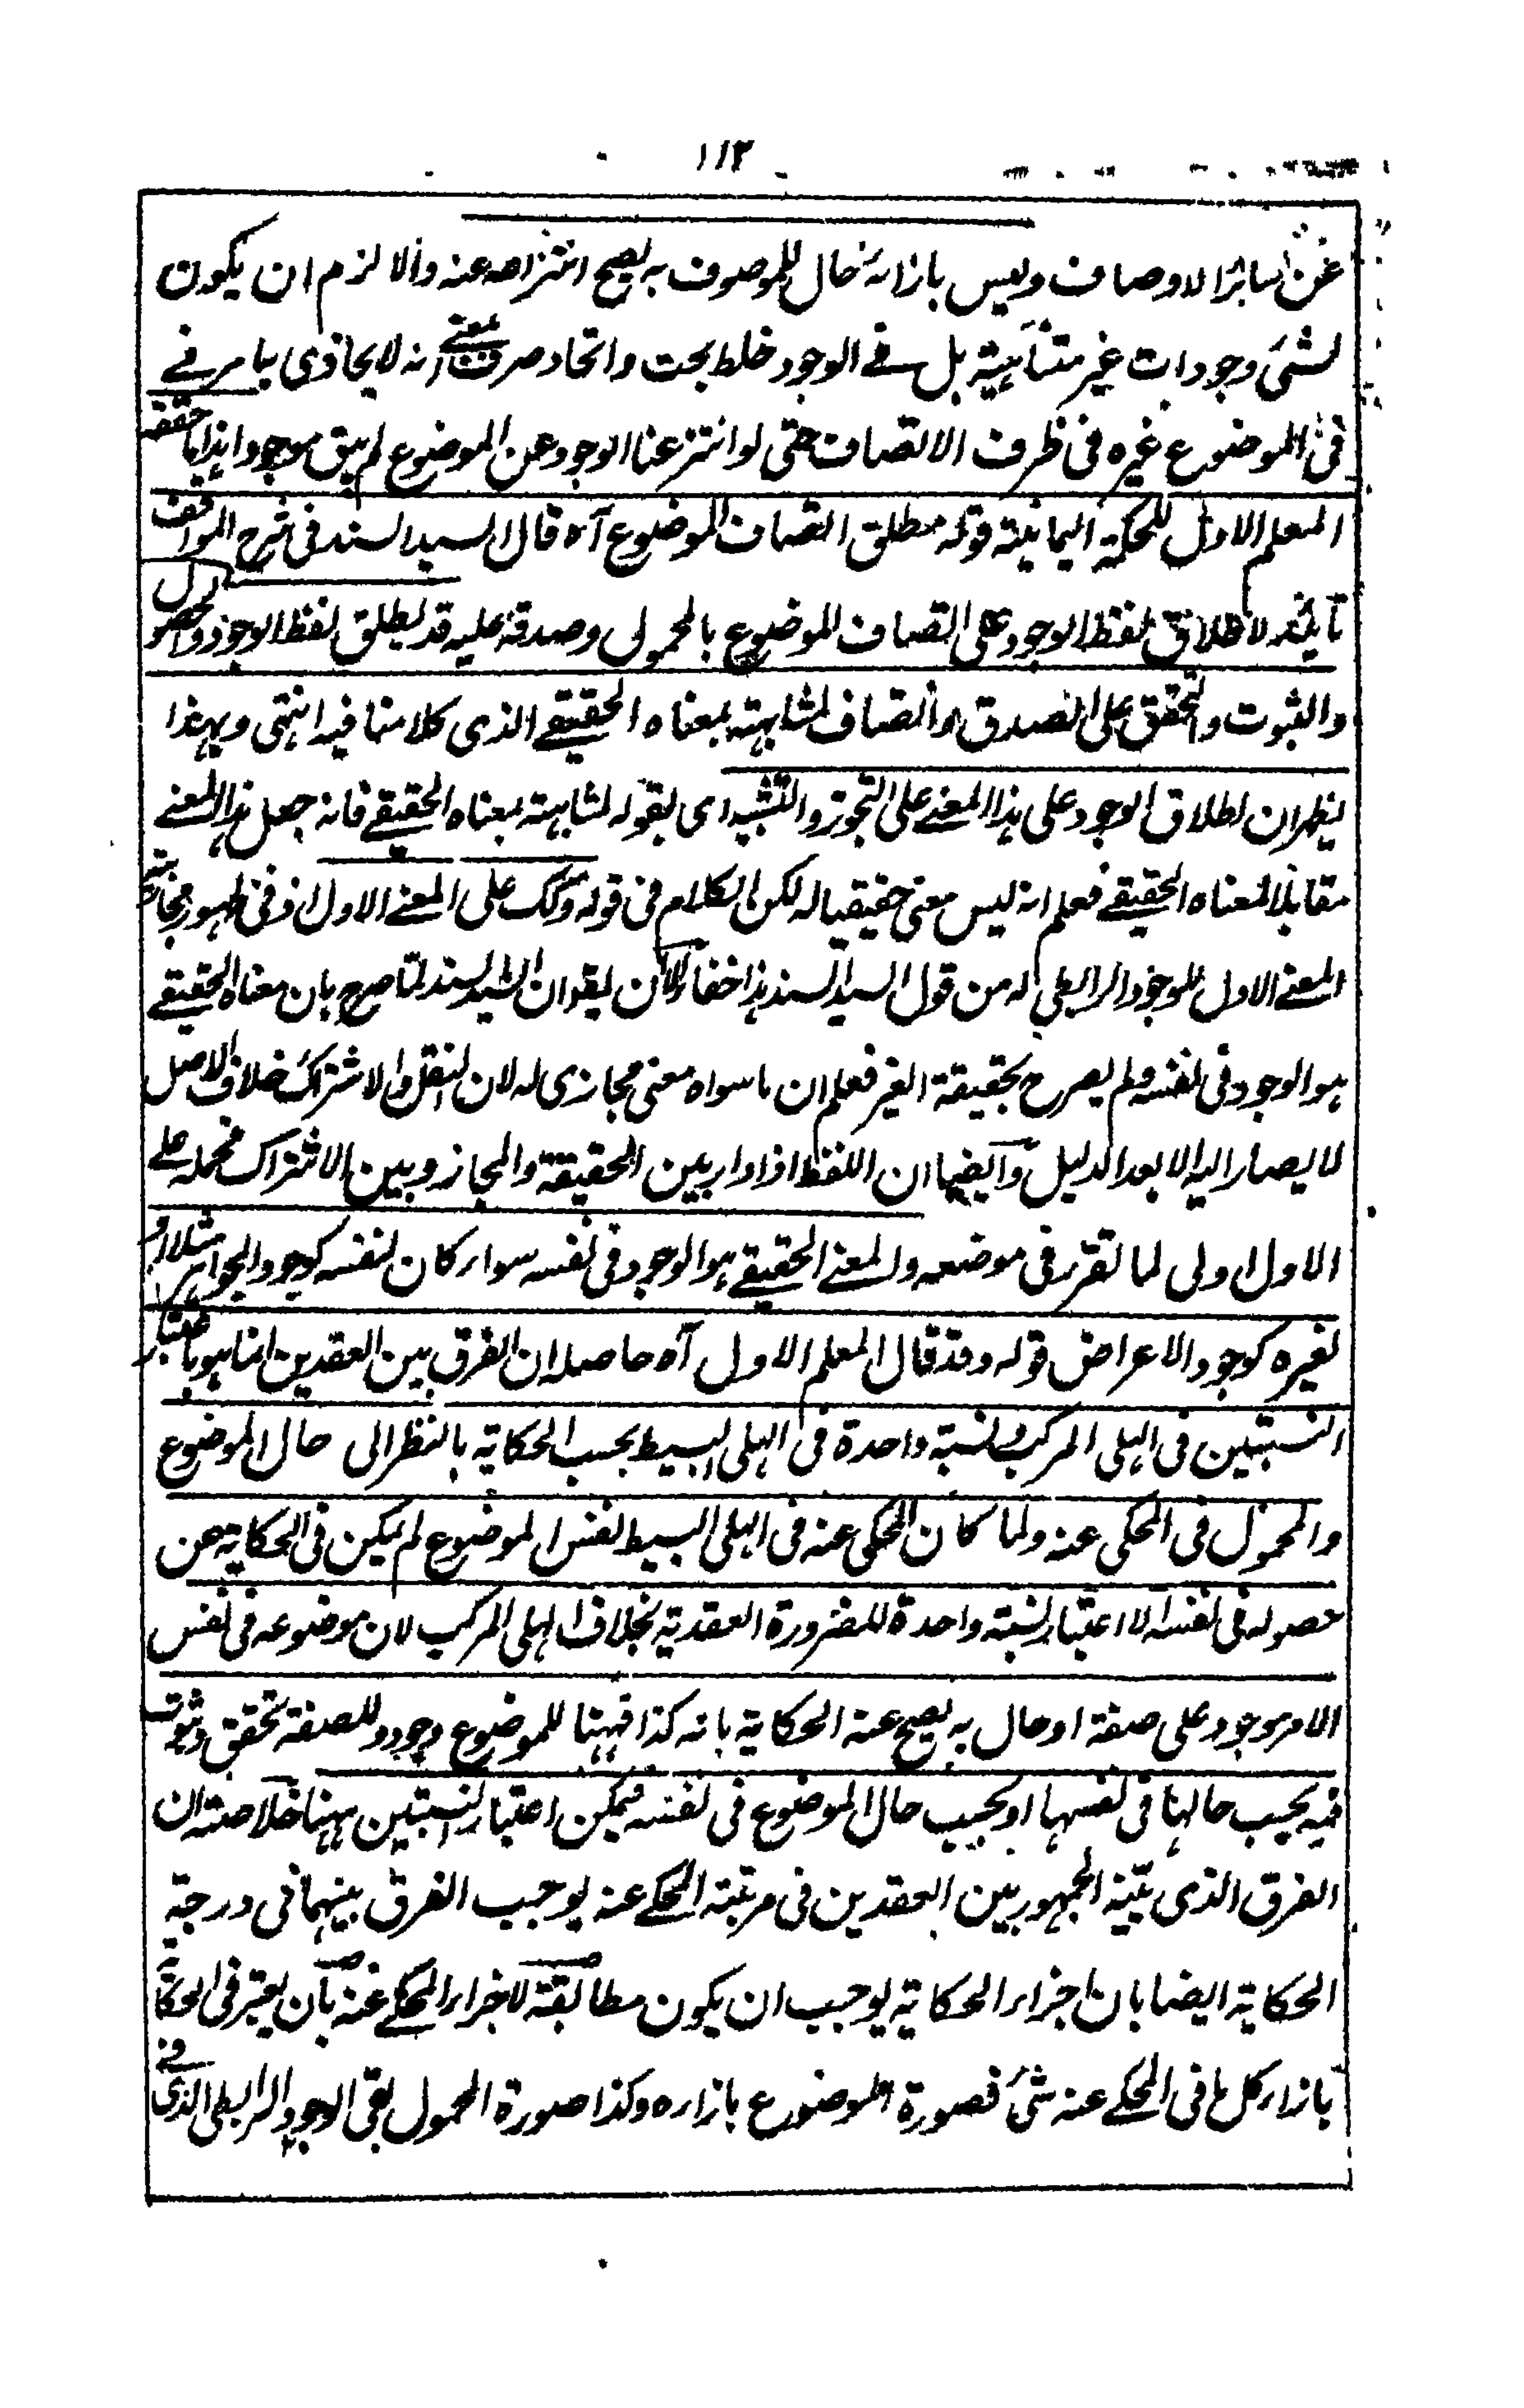 ١١٣
عن سائر الاوصاف وليس بازائه حال للموصوف به يصح انتزاعه عنه والا لزم ان يكون
لشئ وجودات غير متناهية بل فى الوجود خلط بحت واتحاد صرف بمعنى انه لا يحاذى بامر فى
فى الموضوع غيره فى ظرف الاتصاف حتى لو انتزعنا الوجود عن الموضوع لم يبق موجودا هذا ما حققه
المعلم الاول للحكمة اليمانية قوله مطلق اتصاف الموضوع آه قال السيد السند فى شرح المواقف
تأييد لاطلاق لفظ الوجود على اتصاف الموضوع بالمحمول وصدقه عليه قد يطلق لفظ الوجود والحصول
والثبوت والتحقق على الصدق والاتصاف لمشابهته بمعناه الحقيقى الذى كلامنا فيه انتهى وبهذا
يظهر ان اطلاق الوجود على هذا المعنى على التجوز والتشبيه اى بقوله لمشابهته بمعناه الحقيقى فانه جعل هذا المعنى
مقابلا لمعناه الحقيقى فعلم انه ليس معنى حقيقيا له لكن الكلام فى قوله وذلك على المعنى الاول اذ فى ظهور مجازية
المعنى الاول للوجود الرابطى له من قول السيد السند هذا خفاء ولان يقول ان السيد السند لما صرح بان معناه الحقيقى
هو الوجود فى نفسه ولم يصرح بحقيقة الغير فعلم ان ما سواه معنى مجازى له لان النقل والاشتراك خلاف الاصل
لا يصار اليه الا بعد الدليل وايضا ان اللفظ اذا دار بين الحقيقة والمجاز وبين الاشتراك فحمله على
الاول اولى لما تقرر فى موضعه والمعنى الحقيقى هو الوجود فى نفسه سواء كان لنفسه كوجود الجواهر مثلا او
لغيره كوجود الاعراض قوله وقد قال المعلم الاول آه حاصله ان الفرق بين العقدين انما هو باعتبار
النسبتين فى الهلى المركب ونسبة واحدة فى الهلى البسيط بحسب الحكاية بالنظر الى حال الموضوع
والمحمول فى المحكى عنه ولما كان المحكى عنه فى الهلى البسيط نفس الموضوع لم يكن فى الحكاية عن
حصوله فى نفسه الا اعتبار نسبة واحدة للضرورة العقدية بخلاف الهلى المركب لان موضوعه فى نفس
الامر موجود على صفة او حال به يصح عنه الحكاية بانه كذا فههنا للموضوع وجود وللصفة تحقق وثبوت
فيه بحسب حالها فى نفسها او بحسب حال الموضوع فى نفسه فيمكن اعتبار النسبتين ههنا خلاصته ان
الفرق الذى بينه الجمهور بين العقدين فى مرتبة المحكى عنه يوجب الفرق بينهما فى درجة
الحكاية ايضا بان اجزاء الحكاية يوجب ان يكون مطابقة لاجزاء المحكى عنه بان يعتبر فى الحكاية
بازاء كل ما فى المحكى عنه شئ فصورة الموضوع بازاءه وكذا صورة المحمول بقى الوجود الرابطى الذى فى